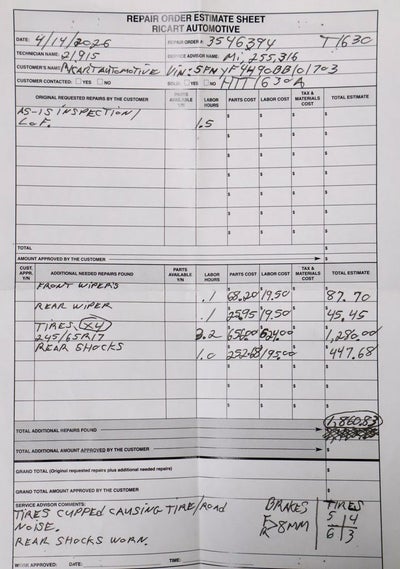 REPAIR ORDER ESTIMATE SHEET
RICART AUTOMOTIVE
DATE: 4/14/2026 REPAIR ORDER #: 3546394 T1630
TECHNICIAN NAME: 21,915 SERVICE ADVISOR NAME: M, 255,316
CUSTOMER'S NAME: RICART AUTOMOTIVE Vin: 5FNYF4490BB101703
CUSTOMER CONTACTED: YES NO SOLD: YES NO HTT1630A
ORIGINAL REQUESTED REPAIRS BY THE CUSTOMER PARTS AVAILABLE Y/N LABOR HOURS PARTS COST LABOR COST TAX & MATERIALS COST TOTAL ESTIMATE
AS-IS INSPECTION/
LOF. 1.5
TOTAL
AMOUNT APPROVED BY THE CUSTOMER
CUST. APPR. Y/N ADDITIONAL NEEDED REPAIRS FOUND PARTS AVAILABLE Y/N LABOR HOURS PARTS COST LABOR COST TAX & MATERIALS COST TOTAL ESTIMATE
FRONT WIPER'S .1 68.20 19.50 87.70
REAR WIPER .1 25.95 19.50 45.45
TIRES X4
245/65R17 3.2 656.00 624.00 1,280.00
REAR SHOCKS 1.0 252.68 195.00 447.68
1,860.83
TOTAL ADDITIONAL REPAIRS FOUND
TOTAL ADDITIONAL AMOUNT APPROVED BY THE CUSTOMER
GRAND TOTAL (Original requested repairs plus additional needed repairs)
GRAND TOTAL AMOUNT APPROVED BY THE CUSTOMER
SERVICE ADVISOR COMMENTS:
TIRES CUPPED CAUSING TIRE/ROAD
NOISE.
REAR SHOCKS WORN.
BRAKES
F
R >8MM
TIRES
5 4
6 3
WORK APPROVED: DATE: TIME: